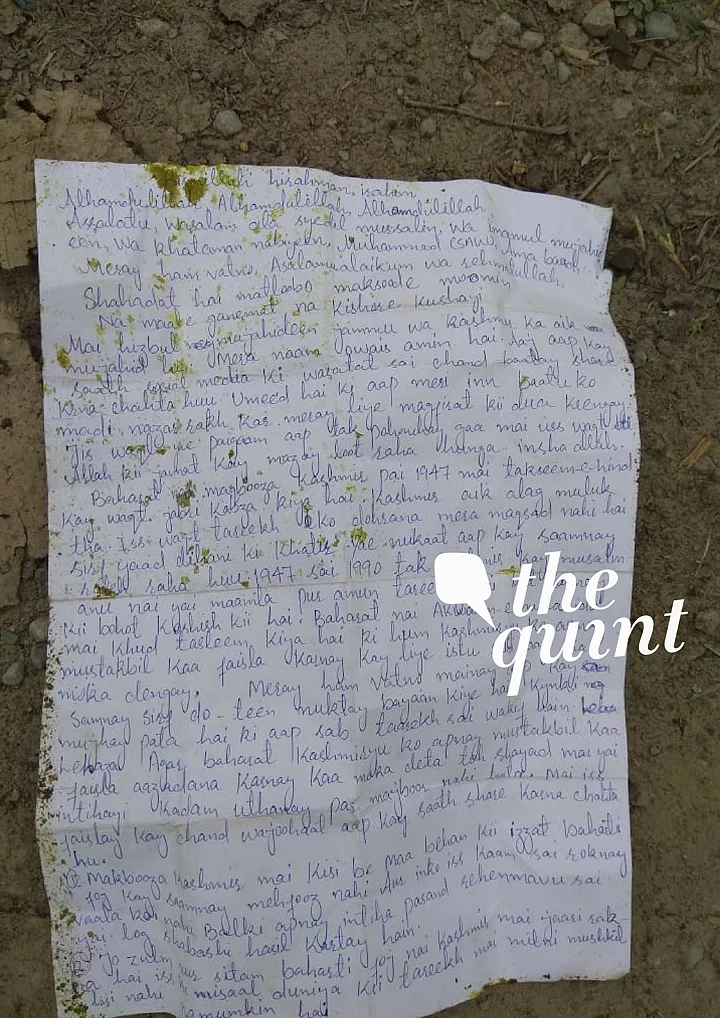 illahi hirahman, irahim
Alhamdulillah Alhamdulillah, Alhamdulillah
Assalatu, Wasalam ala syedil mussalin, wa
een, Wa khataman nabiyeen, Muhammad (SAW), Ama baad
Meray ham vatno, Asalamualaikum wa
Shahadat hai matloobo maksoode moomin
Na maale ganemat na Kishore kushayi
Mai hizbul mujahideen jammu wa kashmir ka aik
mujahid hu. Mera naam owais amin hai. Aaj aap kay
saath social media ki wasatat sai chand baatay share
Krna chahta huu. Umeed hai ki aap meri inn baatu ko
madi nazar rakh kar meray liye magfirat kii dua krengay
Jis waqt ye paigaam aap tak pahunchay gaa mai uss waqt
Allah kii janat kay mazay loot raha hunga. insha allah.
Baharat nai magbooza Kashmir pai 1947 mai takseem-e-hind
Kay waqt jabri kabza kiya hai. Kashmir aik alag muluk
tha. Iss waqt tareekh ko dohrana mera maqsad nahi hai
sirf yaad dilani ki khatir yae nukaat aap kay saamnay
raha huu. 1947 sai 1990 tak kay musalm
anu nai yai maamla pur amun
kii bohot koshish kii hai. Baharat nai
mai khud tasleem kiya hai ki hum Kashmiriyu ko apnay
mustakbil kaa faisla karnay kay liye
denqay. Meray ham vatno mainay aap kay
Samnay sirf do-teen nuktay bayaan kiye hai. Kyunki
mujhay pata hai ki aap sab taareekh sai wakif hain.
Lehaza Agar baharat Kashmiriyu ko apnay mustakbil kaa
faisla aazadana karnay kaa moka deta toh shayad mai yai
intihayi kadam uthanay par majboor nahi hota. Mai iss
faislay kay chand wajoohaat aap kay saath share karna chahta
hu.
① Makbooza Kashmir mai kisi be maa behan kii izzat baharti
foj kay saamnay mehfooz nahi. Aur inko iss kaam sai roknay
vaala koi nahi. Ballki apnay intiha pasand rehenmavu sai
yai log shabashi hasil kartay hain.
Jo zulm aur sitam baharti foj nai kashmir mai jaari rak-
a hai iss kii misaal duniya kii tareekh mai milni mushkil
issi nahi namumkin hai
the
quint